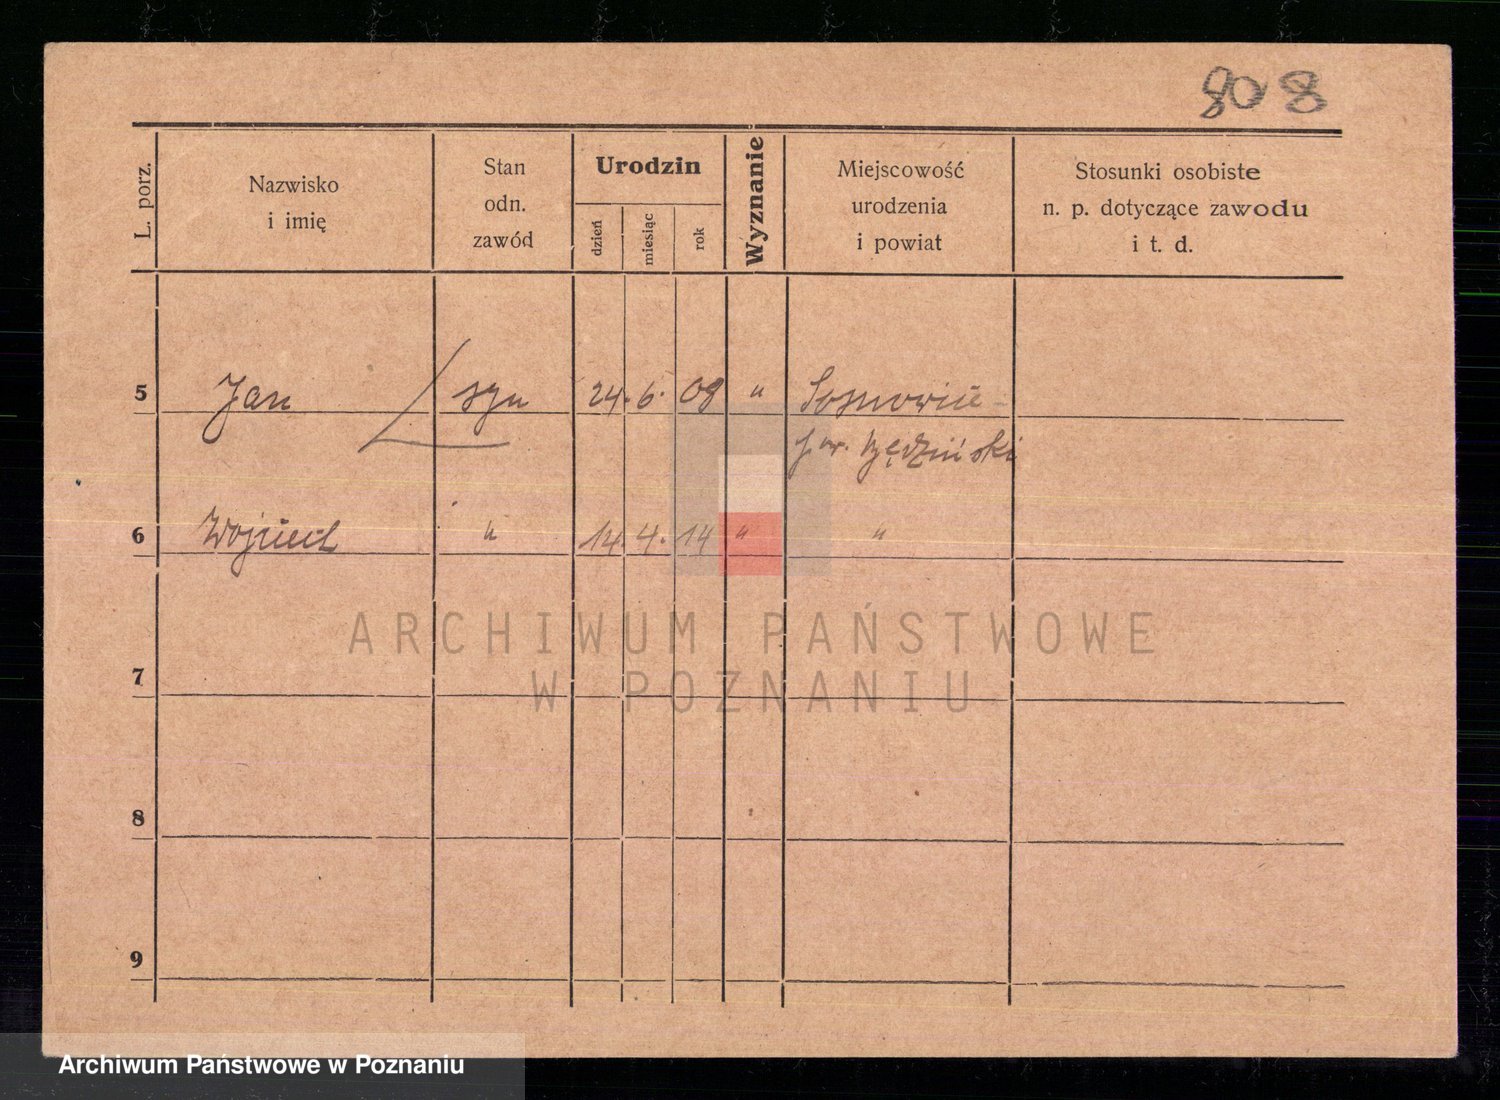 808
L. porz.
Nazwisko
i imię
Stan
odn.
zawód
Urodzin
dzień
miesiąc
rok
Wyznanie
Miejscowość
urodzenia
i powiat
Stosunki osobiste
n. p. dotyczące zawodu
i t. d.
5 Jan syn 24. 6. 08 "
pow. Będziński
6 Wojciech " 14 4. 14 " "
ARCHIWUM PAŃSTWOWE
W POZNANIU
7
8
9
Archiwum Państwowe w Poznaniu